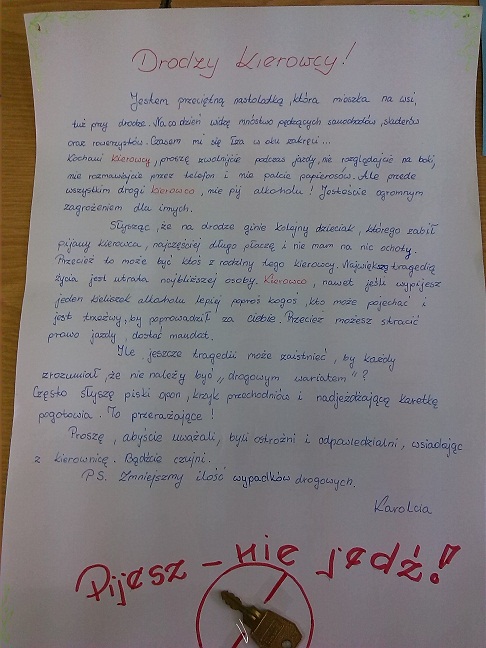 Drodzy Kierowcy!
Jestem przeciętną nastolatką, która mieszka na wsi,
tuż przy drodze. Na co dzień widzę mnóstwo pędzących samochodów, skuterów
oraz rowerzystów. Czasem mi się łza w oku zakręci...
Kochani kierowcy, proszę zwolnijcie podczas jazdy, nie rozglądajcie na boki,
nie rozmawiajcie przez telefon i nie palcie papierosów. Ale przede
wszystkim drogi kierowco, nie pij alkoholu! Jesteście ogromnym
zagrożeniem dla innych.
Słysząc, że na drodze ginie kolejny dzieciak, którego zabił
pijany kierowca, najczęściej długo płaczę i nie mam na nic ochoty.
Przecież to może być ktoś z rodziny tego kierowcy. Największą tragedią
życia jest utrata najbliższej osoby. Kierowco, nawet jeśli wypijesz
jeden kieliszek alkoholu lepiej poproś kogoś, kto może pojechać i
jest trzeźwy, by poprowadził za ciebie. Przecież możesz stracić
prawo jazdy, dostać mandat.
Ile jeszcze tragedii może zaistnieć, by każdy
zrozumiał, że nie należy być „drogowym wariatem"?
Często słyszę piski opon, krzyk przechodniów i nadjeżdżającą karetkę
pogotowia. To przerażające!
Proszę, abyście uważali, byli ostrożni i odpowiedzialni, wsiadając
z kierownicę. Bądźcie czujni.
P.S. Zmniejszmy ilość wypadków drogowych.
Karolcia
Pijesz - nie jedź!